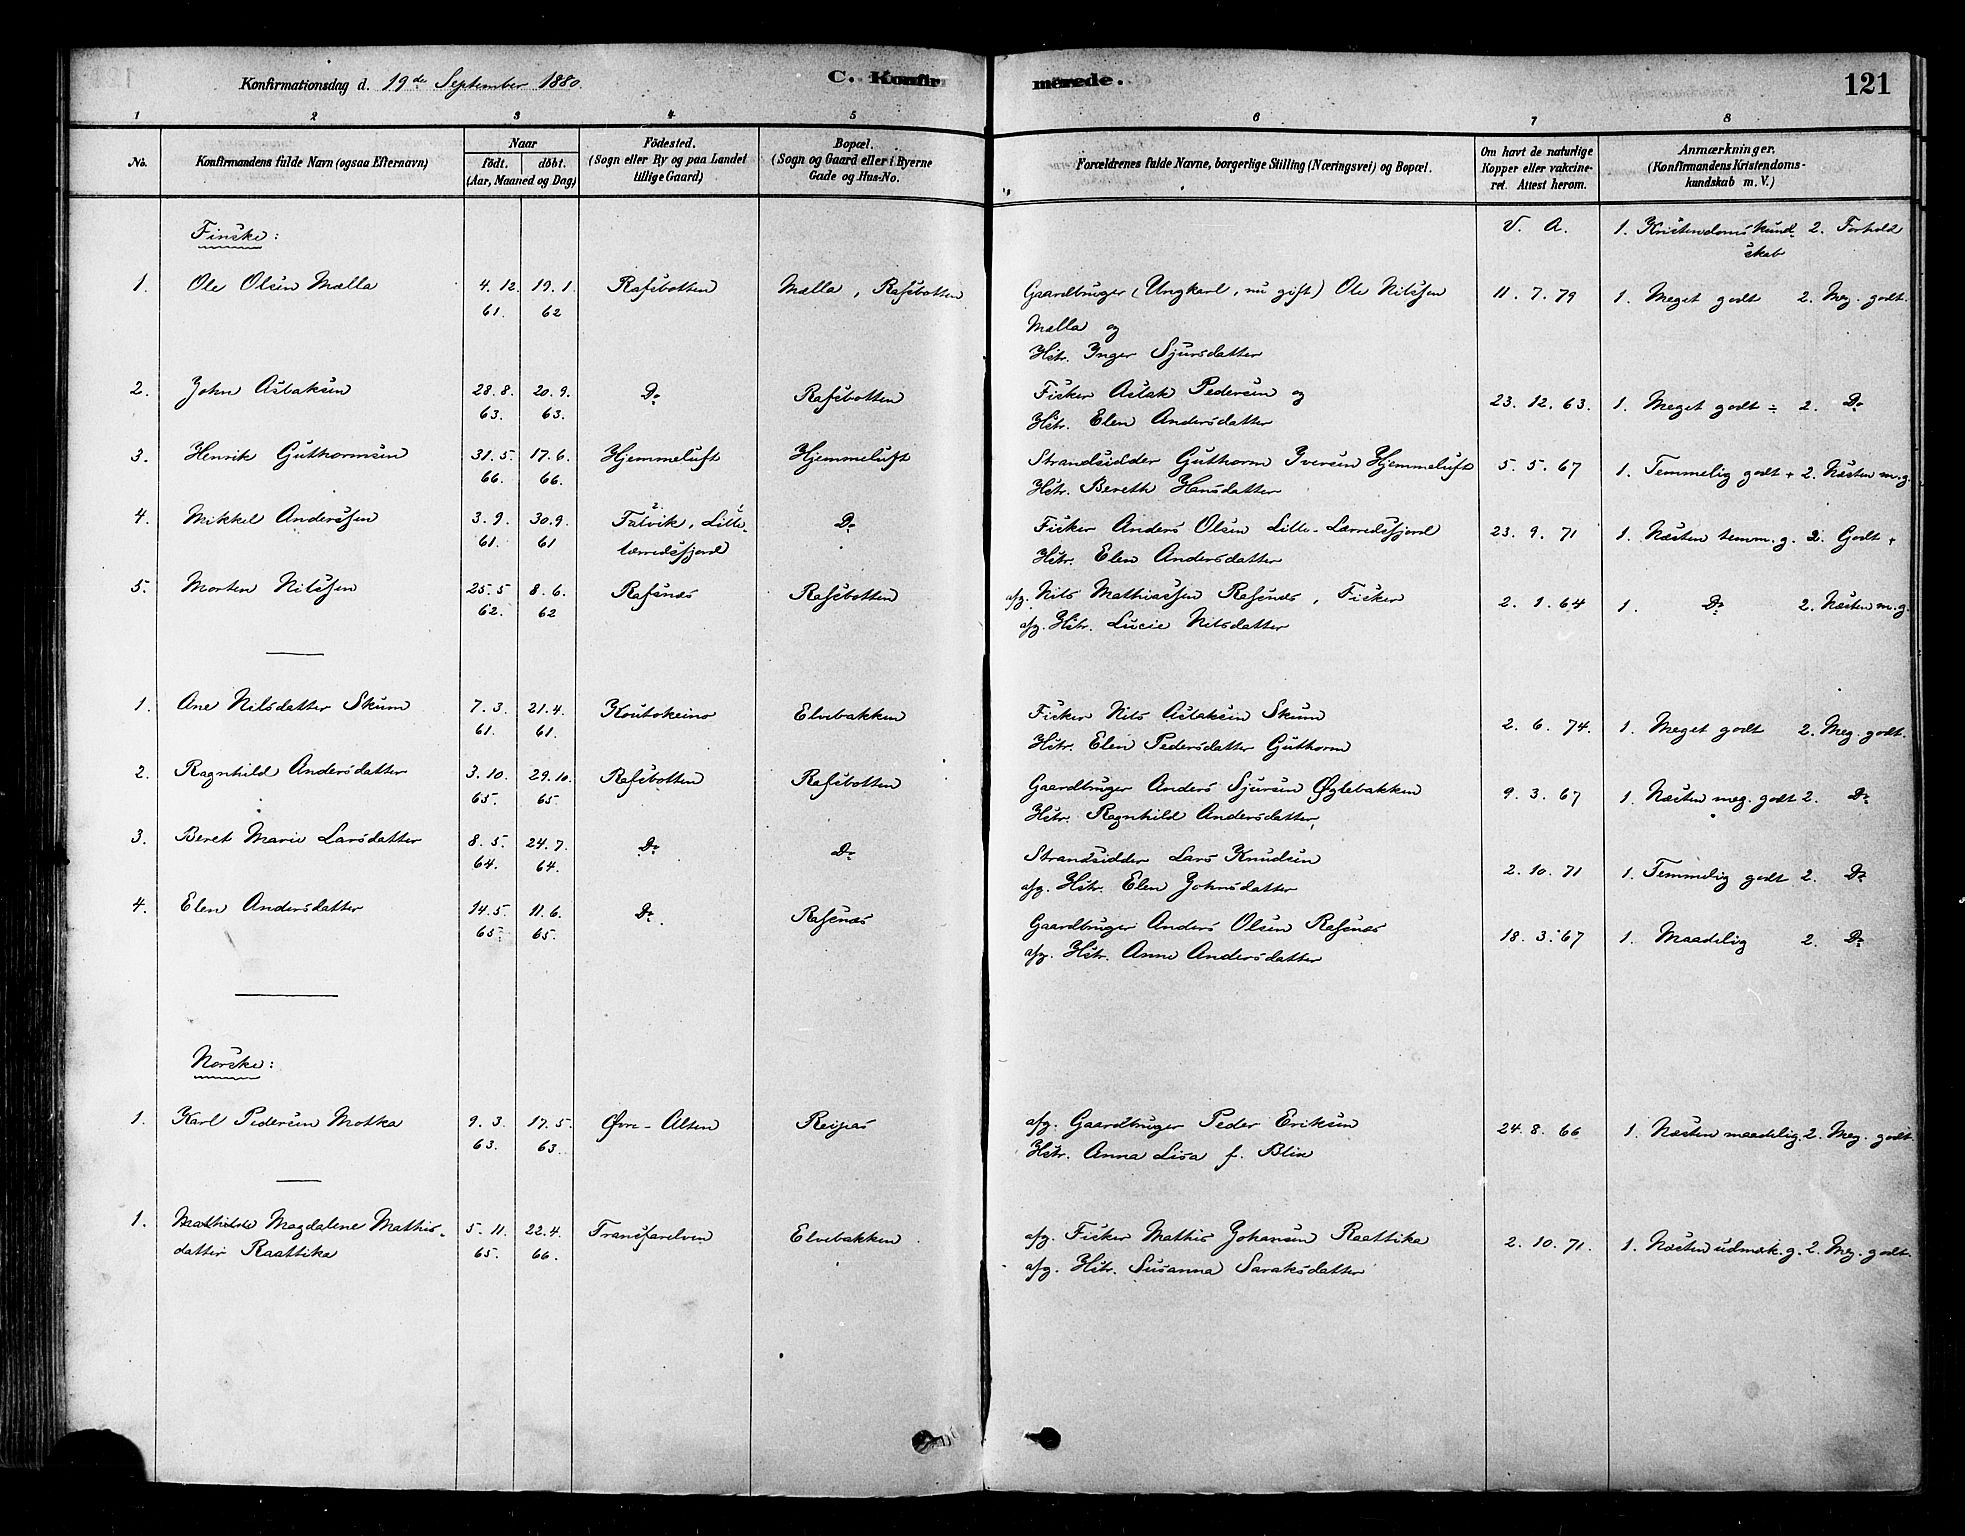 Konfirmationsdag d. 19de September 1880.
C. Konfirmerede.
121
1 2 3 4 5 6 7 8
No.
Konfirmandens fulde Navn (ogsaa Efternavn)
Naar
födt. döbt.
(Aar, Maaned og Dag)
Födested.
(Sogn eller By og paa Landet
tillige Gaard)
Bopæl.
(Sogn og Gaard eller i Byerne
Gade og Hus-No.
Forældrenes fulde Navne, borgerlige Stilling (Næringsvei) og Bopæl.
Om havt de naturlige
Kopper eller vakcine-
ret. Attest herom.
Anmærkninger.
(Konfirmandens Kristendoms-
kundskab m. V.)
Finske:
V. A. 1. Kristendomskund- 2. Forhold
skab
1. Ole Olsen Mella 4. 12. 19. 1. Rafsbotten Mælla, Rafsbotten Gaardbruger (Ungkarl, nu gift) Ole Nilssen 11. 7. 79 1. Meget godt 2. Meg. godt.
61. 62 Mælla og
Hstr. Inger Sjursdatter
2. John Aslaksen 28. 8. 20. 9. Do Rafsbotten Fisker Aslak Pedersen og 23. 12. 63. 1. Meget godt ÷ 2. Do
63. 63. Hstr. Elen Andersdatter
3. Henrik Guttormsen 31. 5. 17. 6. Hjemmeluft Hjemmeluft Strandsidder Guthorm Iversen Hjemmeluft 5. 5. 67 1. Temmelig godt + 2. Næsten m. g.
66. 66. Hstr. Bereth Hansdatter
4. Mikkel Anderssen 3. 9. 30. 9. Talvik, Lille- Do Fisker Anders Olsen Lille-Lærredsfjord 23. 9. 71 1. Næsten temm. g. 2. Godt +
61. 61 lærredsfjord Hstr. Elen Andersdatter
5. Morten Nilssen 25. 5 8. 6. Rafsnæs Rafsbotten afg. Nils Mathiassen Rafsnæs, Fisker 2. 1. 64 1. Do 2. Næsten m. g.
62. 62 afg. Hstr. Lucie Nilsdatter
1. Ane Nilsdatter Skum 7. 3. 21. 4. Koutokeino Elvebakken Fisker Nils Aslaksen Skum 2. 6. 74. 1. Meget godt 2. Meg. godt.
61. 61. Hstr. Elen Pedersdatter Guthorm
2. Ragnhild Andersdatter 3. 10. 29. 10. Rafsbotten Rafsbotten Gaardbruger Anders Sjursen Øglebakken 9. 3. 67 1. Næsten meg. godt 2. Do
65. 65. Hstr. Ragnhild Andersdatter,
3. Beret Marie Larsdatter 8. 5. 24. 7. Do Do Strandsidder Lars Knudsen 2. 10. 71 1. Temmelig godt 2. Do
64. 64. afg. Hstr. Elen Johnsdatter
4. Elen Andersdatter 14. 5. 11. 6. Do Rafsnæs Gaardbruger Anders Olsen Rafsnæs 18. 3. 67 1. Maadelig 2. Do
65. 65. afg. Hstr. Anne Andersdatter
Norske:
1. Karl Pedersen Motka 9. 3. 17. 5. Øvre-Alten Reipas afg. Gaardbruger Peder Eriksen 24. 8. 66 1. Næsten maadelig. 2. Meg. godt.
63. 63. Hstr. Anna Lisa f. Blix
1. Mathilde Magdalene Mathis- 5. 11. 22. 4. Transfarelven Elvebakken afg. Fisker Mathis Johansen Raattika 2. 10. 71. 1. Næsten udmærk. g. 2. Meg. godt.
datter Raattika 65. 66. afg. Hstr. Susanna Saraksdatter